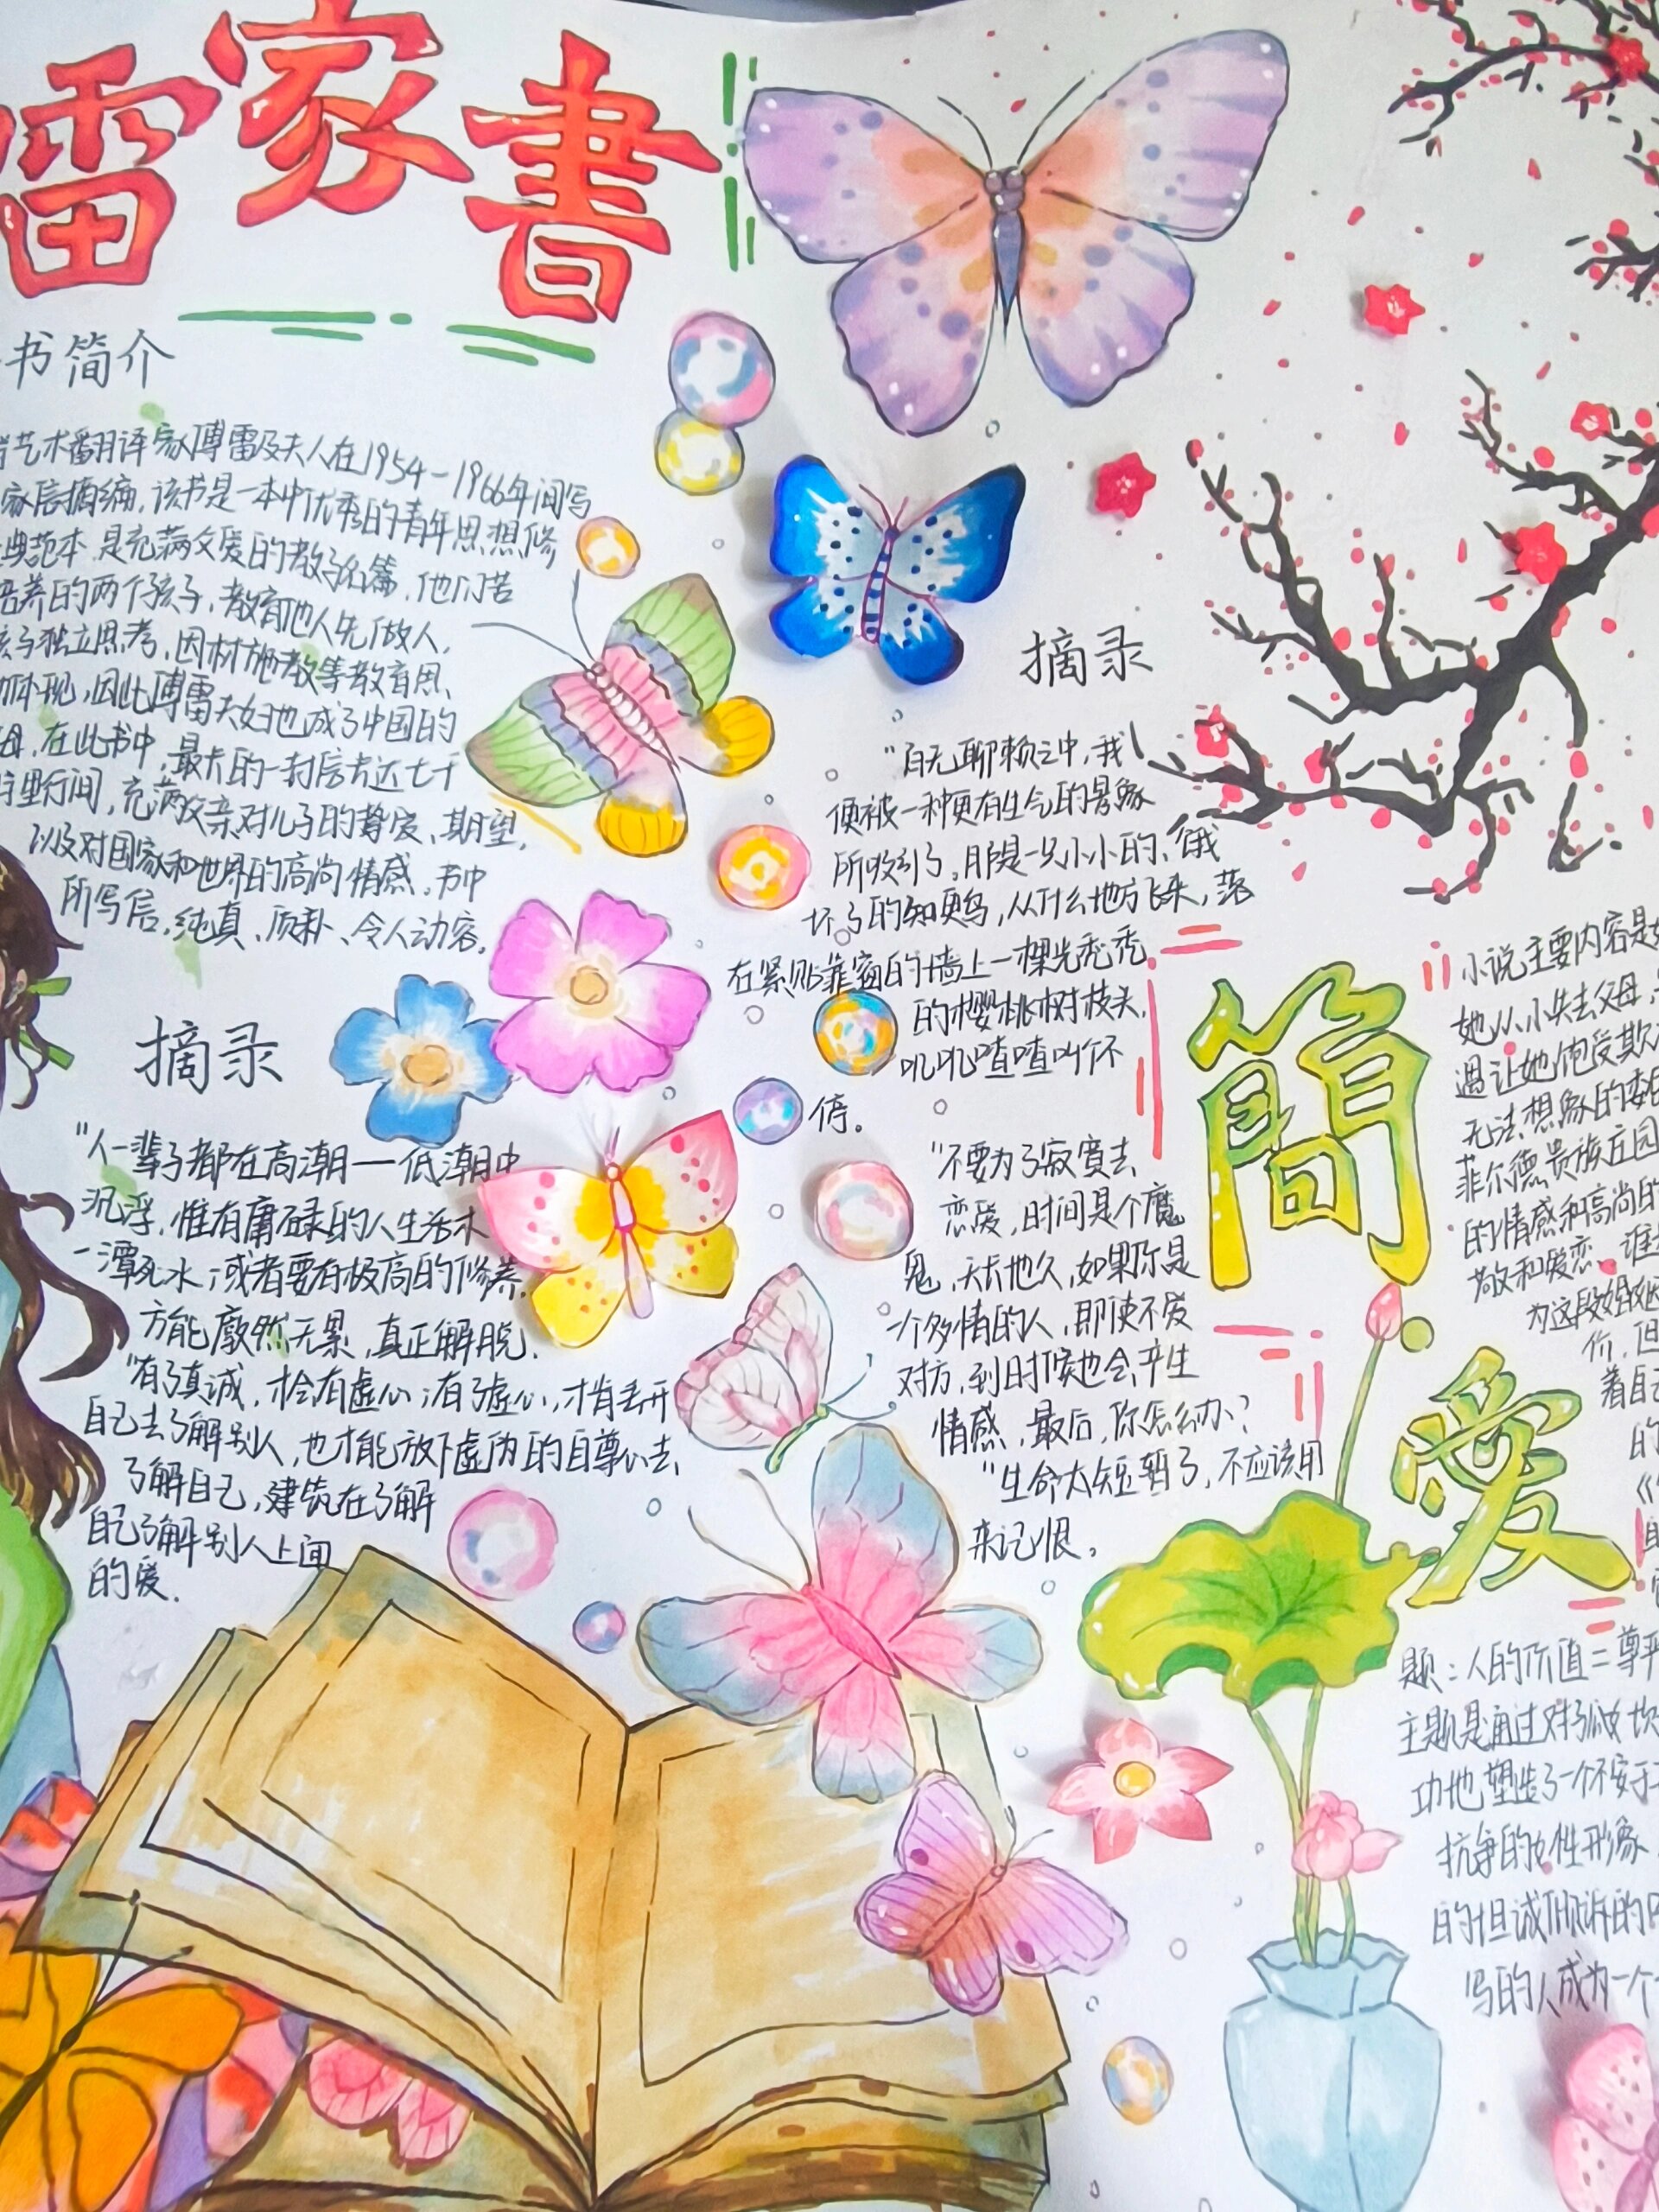 雷家書
书简介
艺术翻译家傅雷及夫人在1954-1966年间写
家信摘编,该书是一本中优秀的青年思想修
典范本.是充满父爱的教子名篇.他们苦
培养的两个孩子,教育他人先做人,
独立思考,因材施教等教育思
体现,因此傅雷夫妇也成了中国的
母.在此书中,最长的一封信长达七千
字里行间,充满父亲对儿子的挚爱、期望,
以及对国家和世界的高尚情感.书中
所写信,纯真、质朴、令人动容。
摘录
"人一辈子都在高潮一低潮中
沉浮,惟有庸碌的人生活才
一潭死水;或者要有极高的修养.
方能廓然无累,真正解脱.
"有了真诚,才会有虚心;有了虚心,才肯丢开
自己去了解别人,也才能放下虚伪的自尊心去
了解自己,建筑在了解
自己了解别人上面
的爱.
摘录
"百无聊赖之中,我
便被一种更有生气的景象
所吸引了,那是一只小小的、饿
坏了的知更鸟,从什么地方飞来,落
在紧贴靠窗的墙上一棵光秃秃
的樱桃树枝头,
叽叽喳喳叫个不
停。
"不要为了寂寞去
恋爱,时间是个魔
鬼,天长地久,如果你是
一个多情的人,即使不爱
对方,到时候也会产生
情感,最后,你怎么办?
"生命太短暂了,不应该用
来记恨。
簡
愛
小说主要内容是
她从小失去父母,
遇让她饱受欺
无法想象的委
菲尔德贵族庄园
的情感和高尚的
敬和爱恋.谁
为这段婚姻
你,但
着自己
的
题:人的价值=尊
主题是通过对孤女坎
功地塑造了一个不安于
抗争的女性形象
的坦诚倾诉的
写的人成为一个